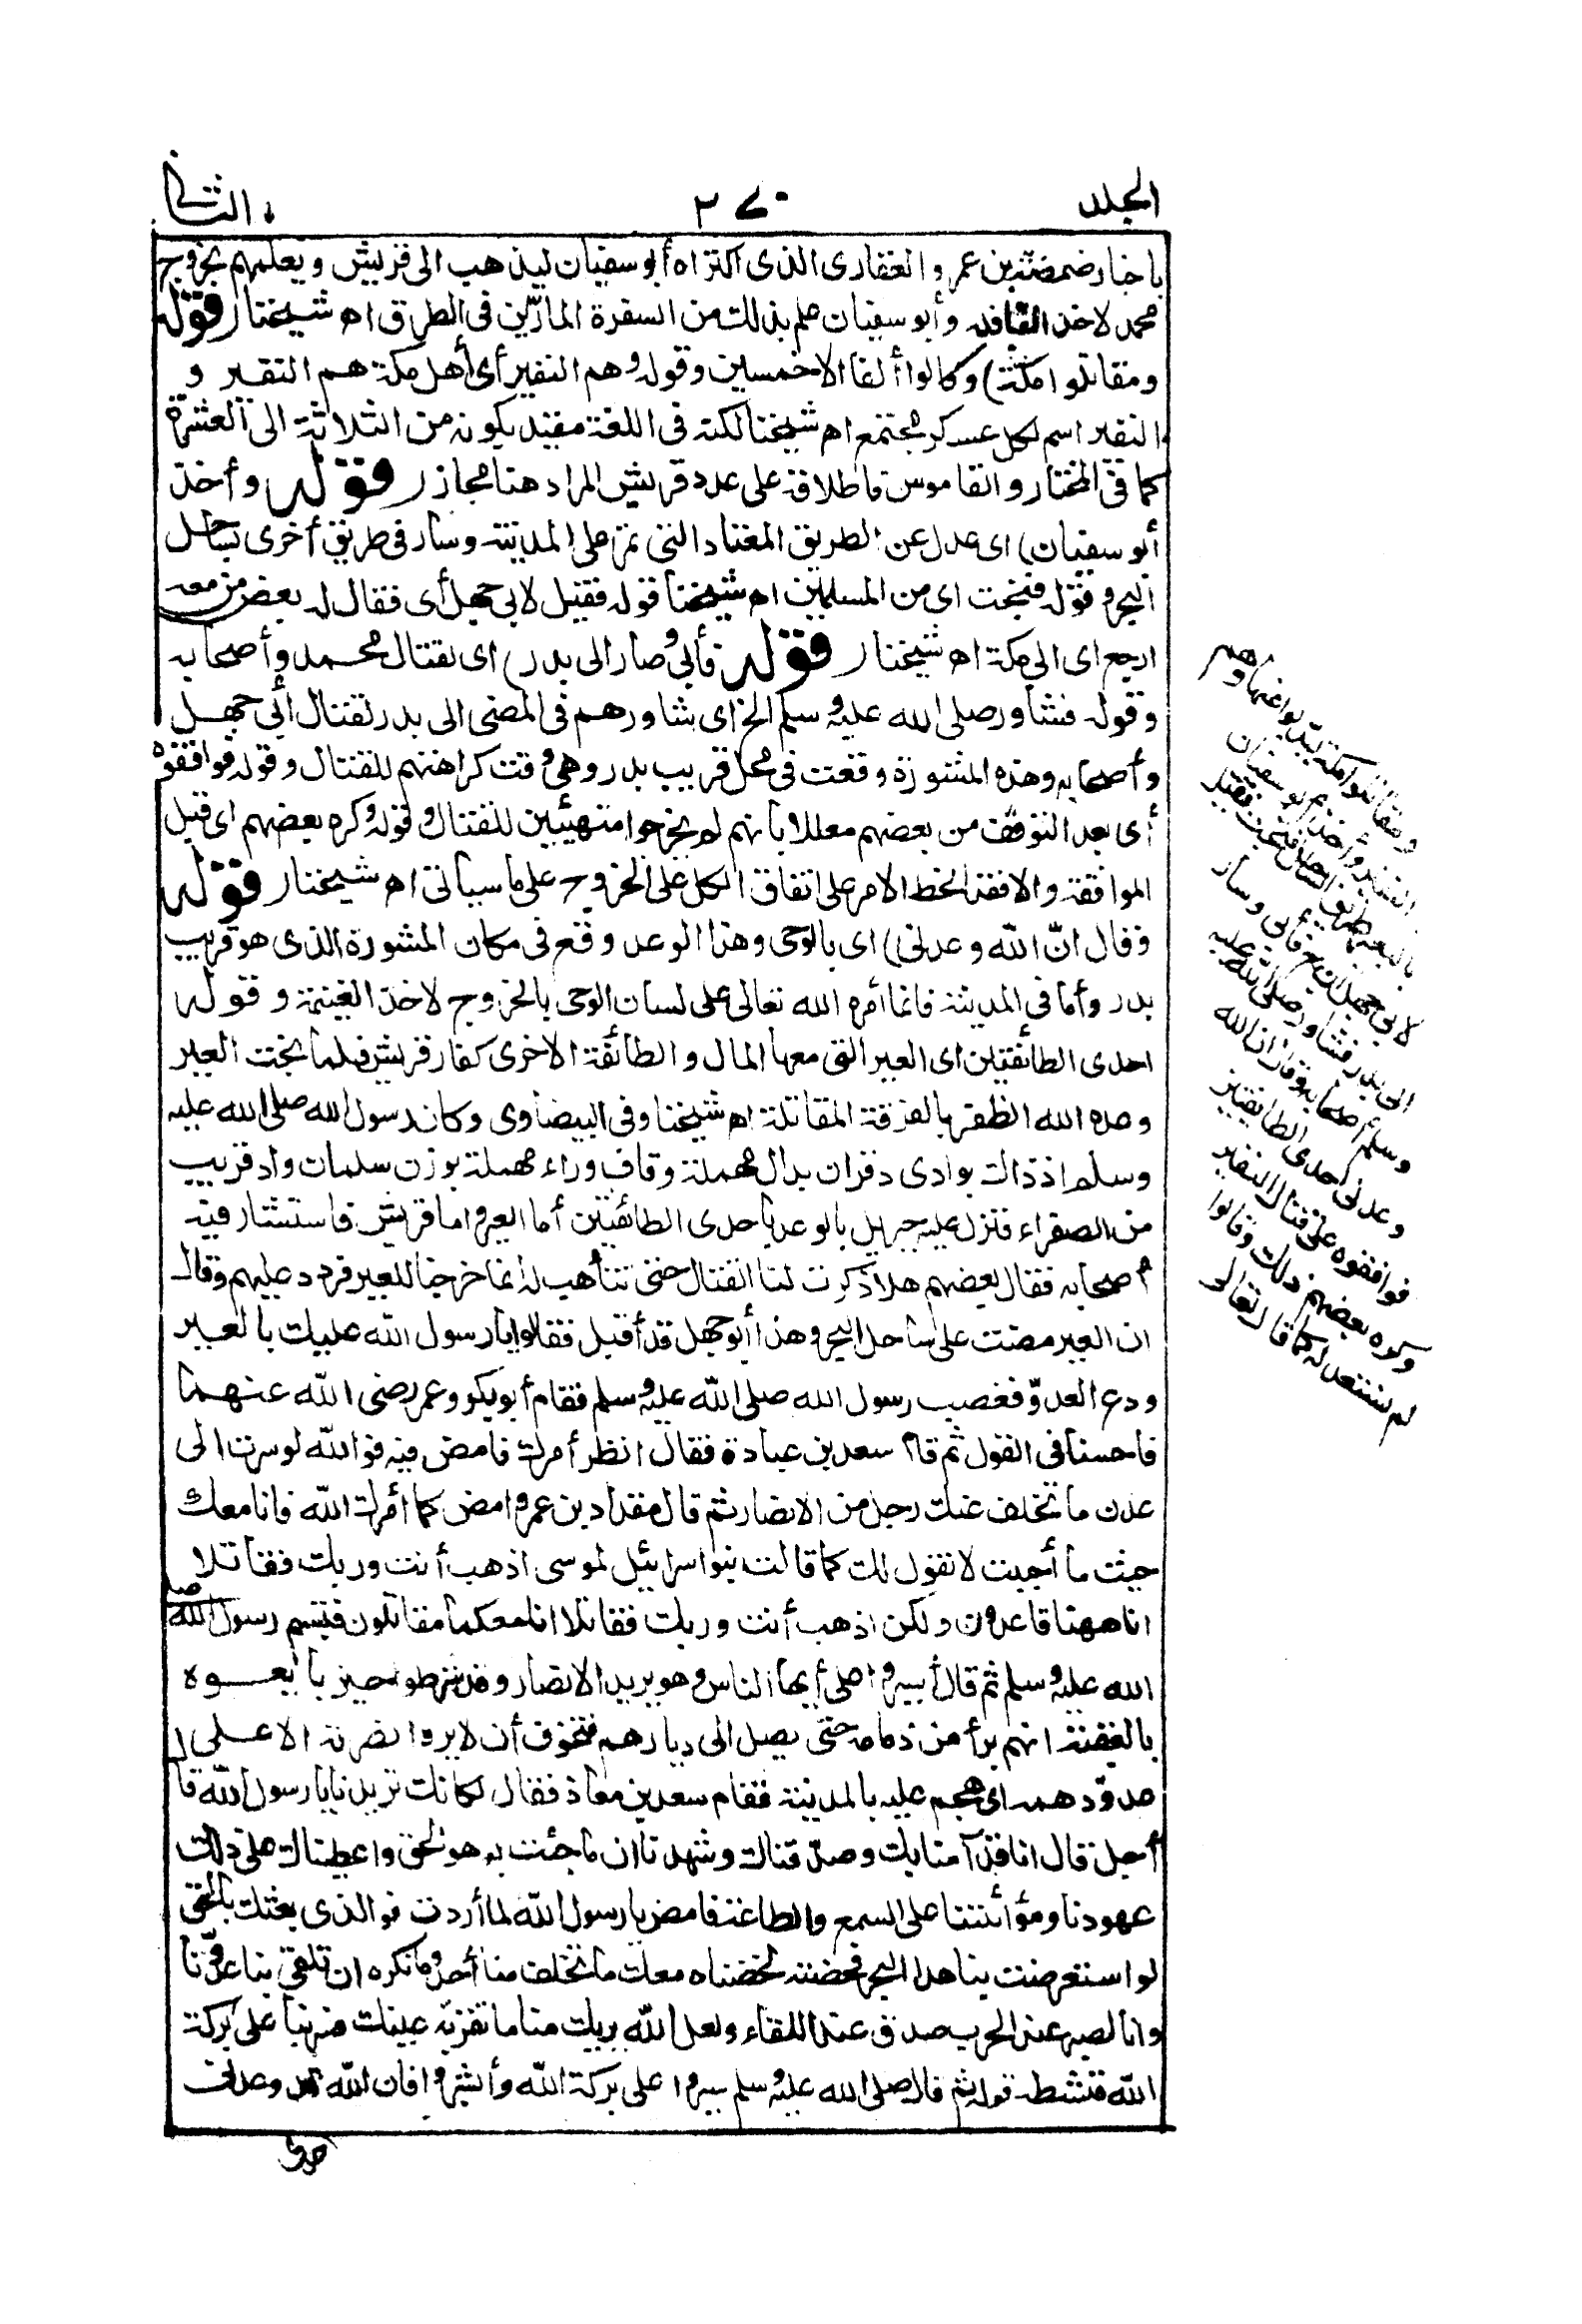 المجلد
٢٧٠
الثانى
باخبار ضمضة بن عمرو الغفارى الذى اكتراه أبو سفيان ليذهب الى قريش ويعلمهم بخروج
محمد لاخذ القافلة وأبو سفيان علم بذلك من السفرة المارّين فى الطرق اه شيخنا رقوله
ومقاتلوا مكة) وكانوا ألفا الاخمسين وقوله وهم النفير أى أهل مكة هم النفير و
النفير اسم لكل عسكر مجتمع اه شيخنا لكنه فى اللغة مقيد بكونه من الثلاثة الى العشرة
كما فى المختار والقاموس فاطلاقه على عدد قريش المراد هنا مجاز رقوله وأخذ
أبو سفيان) اى عدل عن الطريق المعتاد التى تمر على المدينة وسار فى طريق أخرى بساحل
البحر وقوله فنجت اى من المسلمين اه شيخنا قوله فقيل لابى جهل أى فقال له بعض من معه
ارجع اى الى مكة اه شيخنا رقوله فأبى وصار الى بدر) اى لقتال محمد وأصحابه
وقوله فشاور صلى الله عليه وسلم الخ اى شاورهم فى المضى الى بدر لقتال أبى جهل
وأصحابه وهذه المشورة وقعت فى محل قريب بدر وهى وقت كراهتهم للقتال وقوله فوافقوه
أى بعد التوقف من بعضهم معللا بانهم لم يخرجوا متهيئين للقتال وقوله وكره بعضهم اى قبل
الموافقة والافقد انحط الامر على اتفاق الكل على الخروج على ما سياتى اه شيخنا رقوله
وقال انّ الله وعدنى) اى بالوحى وهذا الوعد وقع فى مكان المشورة الذى هو قريب
بدر وأما فى المدينة فانما أمره الله تعالى على لسان الوحى بالخروج لاخذ الغنيمة وقوله
احدى الطائفتين اى العير التى معها المال والطائفة الاخرى كفار قريش فلما نجت العير
وعده الله الظفر بالفرقة المقاتلة اه شيخنا وفى البيضاوى وكان رسول الله صلى الله عليه
وسلم اذ ذاك بوادى دقران بدال مهملة وقاف وراء مهملة بوزن سلمات واد قريب
من الصفراء فنزل عليه جبريل بالوعد باحدى الطائفتين أما العير واما قريش فاستشار فيه
أصحابه فقال بعضهم هلا ذكرت لنا القتال حتى نتأهب له انما خرجنا للعير فردد عليهم وقال
ان العير مضت على ساحل البحر وهذا أبو جهل قد أقبل فقالوا يا رسول الله عليك بالعير
ودع العدوّ فغضب رسول الله صلى الله عليه وسلم فقام أبو بكر وعمر رضى الله عنهما
فاحسنا فى القول ثم قام سعد بن عبادة فقال انظر أمرك فامض فيه فوالله لو سرت الى
عدن ما تخلف عنك رجل من الانصار ثم قال مقداد بن عمرو امض كما أمرك الله فانا معك
حيث ما أحببت لا نقول لك كما قالت بنو اسرائيل لموسى اذهب أنت وربك فقاتلا
انا ههنا قاعدون ولكن اذهب أنت وربك فقاتلا انا معكما مقاتلون فتبسم رسول الله صلى
الله عليه وسلم ثم قال أشيروا على أيها الناس وهو يريد الانصار وقد شرطوا حين بايعوه
بالعقبة انهم برأ من ذمامه حتى يصل الى ديارهم فتخوف أن لا يروا نصرته الا على
عدوّ دهمه اى هجم عليه بالمدينة فقام سعد بن معاذ فقال لكانك تريدنا يا رسول الله قال
أجل قال انا قد آمنا بك وصدقناك وشهدنا ان ما جئت به هو الحق واعطيناك على ذلك
عهودنا ومواثيقنا على السمع والطاعة فامض يا رسول الله لما أردت فوالذى بعثك بالحق
لو استعرضت بنا هذا البحر فخضته لخضناه معك ما تخلف منا أحد وما نكره ان تلقى بنا عدوّنا
وانا لصبر عند الحرب صدق عند اللقاء ولعل الله يريك منا ما تقرّ به عينك فسر بنا على بركة
الله فنشطه قوله ثم قال صلى الله عليه وسلم سيروا على بركة الله وأبشروا فان الله قد وعدنى
ومقاتلوا مكة ليذبوا عنها وهم
النفير وأخذ أبو سفيان
بالعير طريق الساحل فنجت فقيل
لابى جهل ارجع فأبى وسار
الى بدر فشاور صلى الله عليه
وسلم أصحابه وقال ان الله
وعدنى احدى الطائفتين
فوافقوه على قتال النفير
وكره بعضهم ذلك وقالوا
لم نستعد له كما قال تعالى